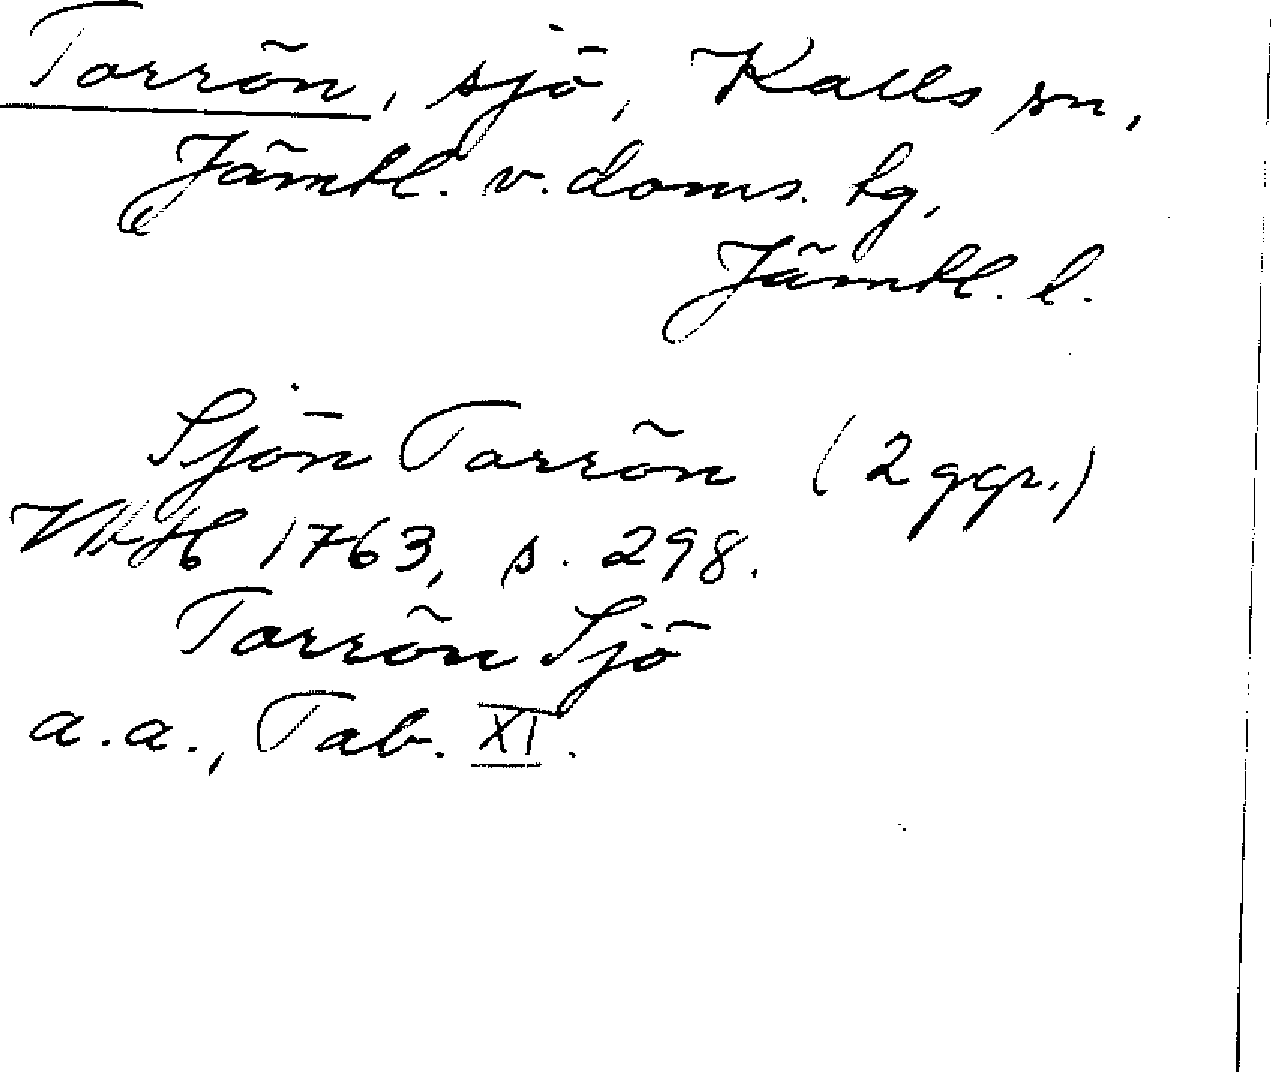 Torrön, sjö, Kalls sn,
Jämtl. v. doms. hg,
Jämtl. l.
Sjön Torrön (2 ggr.)
VAH 1763, s. 298.
Torrön Sjö
a.a., Tab. XI.